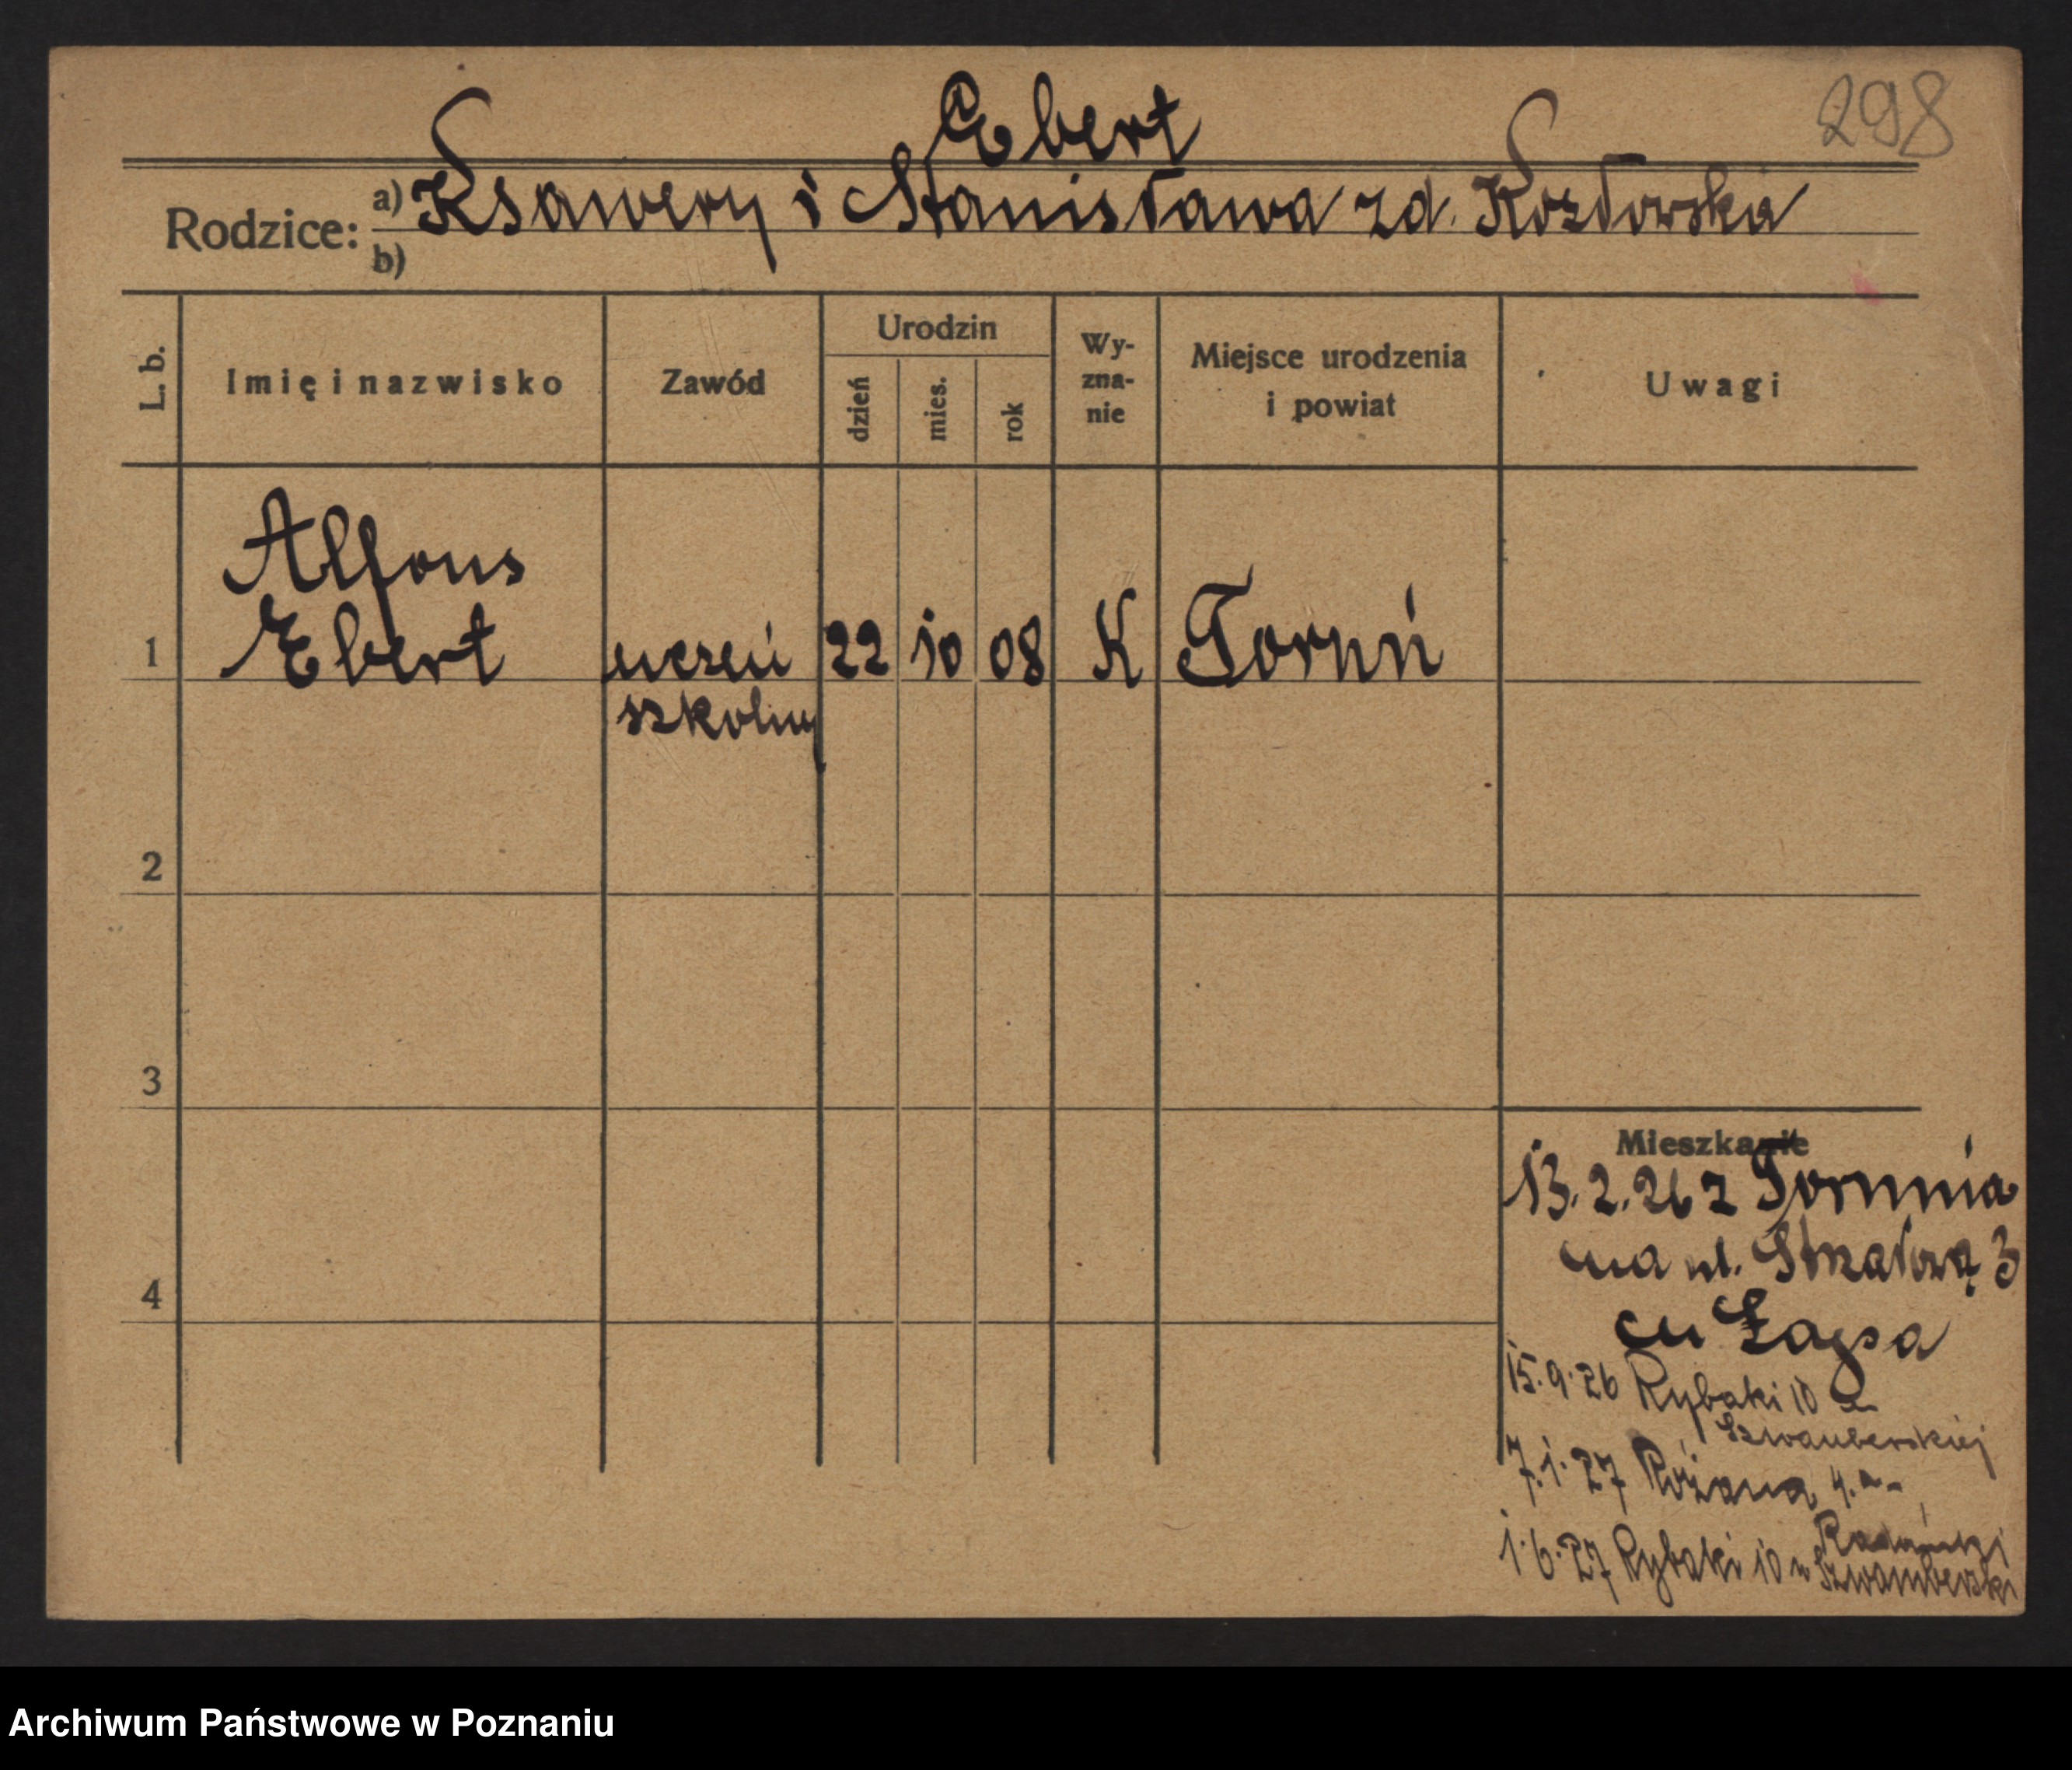 298
Ebert
Rodzice: a) Ksawery i Stanisława zd. Kozłowska
b)
L. b.
Imię i nazwisko
Zawód
Urodzin
dzień
mies.
rok
Wy-
zna-
nie
Miejsce urodzenia
i powiat
Uwagi
Alfons
1 Ebert uczeń 22 10 08 K Toruń
szkolny
2
3
4
Mieszkanie
13.2.26 z Torunia
na ul. 3
15.9.26 Rybaki 10 u
Szwamberskiej
7.1.27 Różana 4.a
1.6.27 Rybaki 10 u Szwamberski
Archiwum Państwowe w Poznaniu